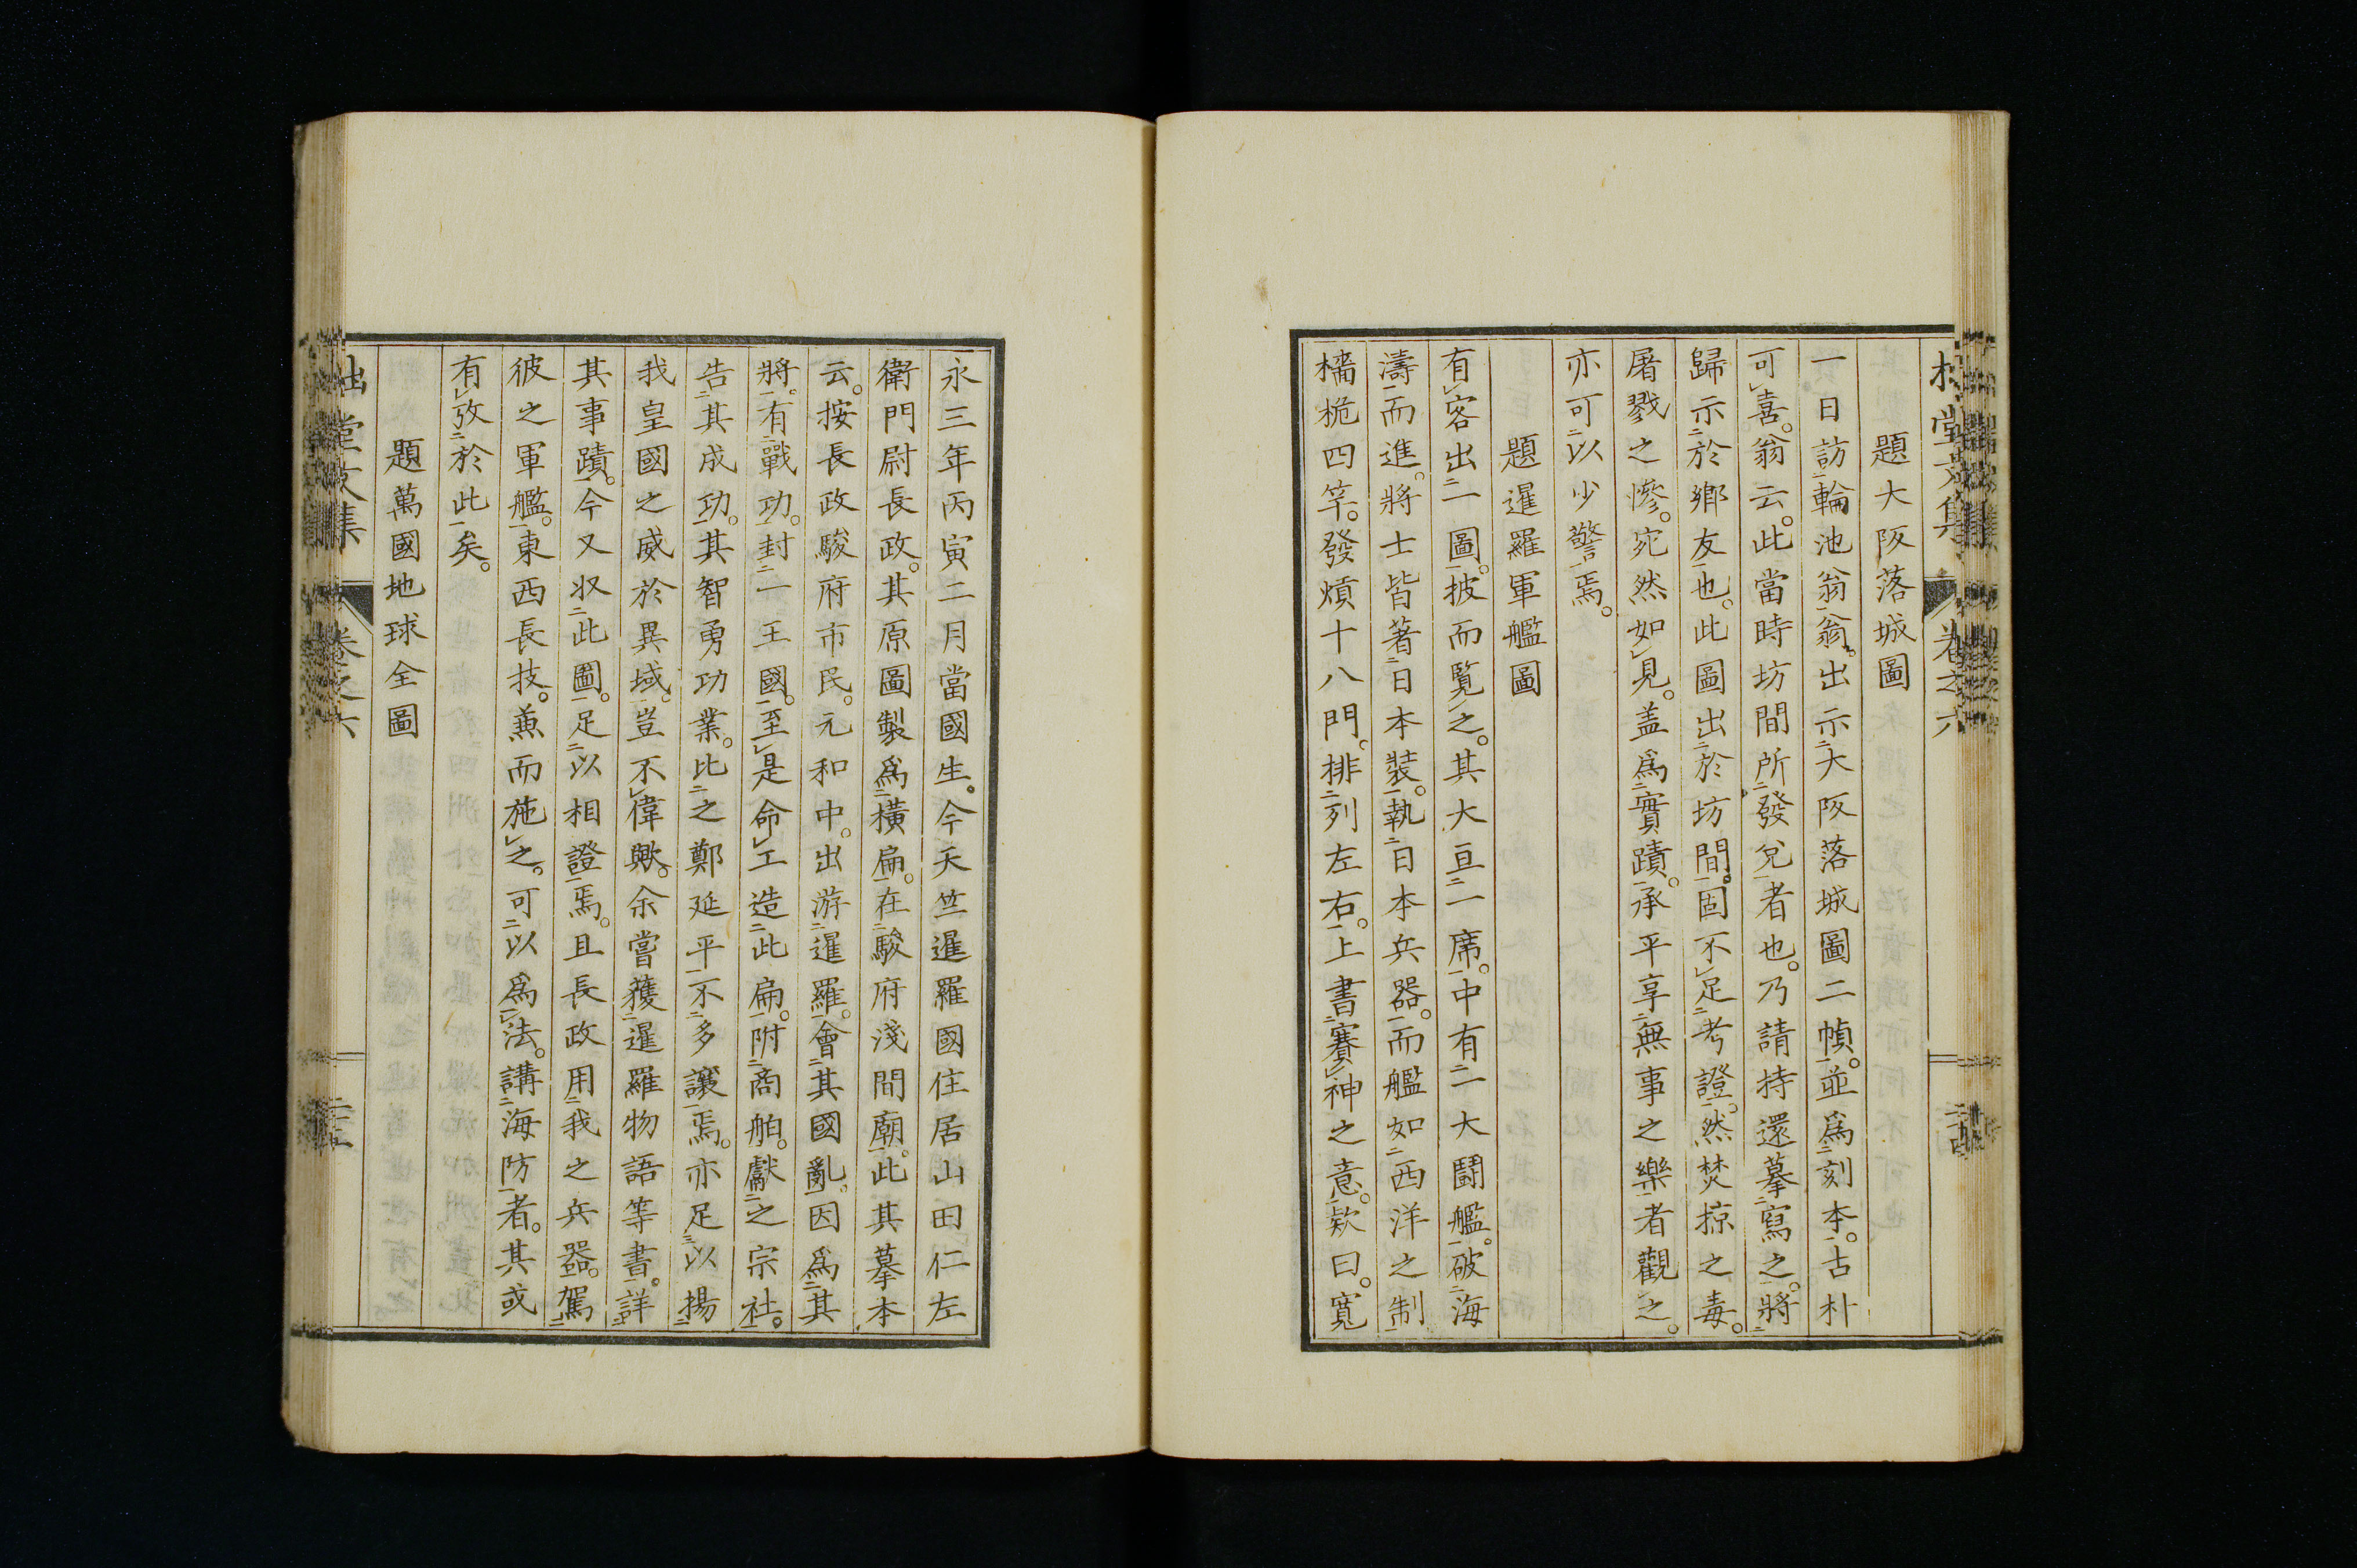 題大阪落城圖
一日訪輪池翁翁。出示大阪落城圖二幀。並爲刻本。古朴
可喜。翁云。此當時坊間所發兌者也。乃請持還摹寫之。將
歸示於鄉友也。此圖出於坊間。固不足考證。然焚掠之毒。
屠戮之慘。宛然如見。盖爲實蹟。承平享無事之樂者觀之。
亦可以少警焉。
題暹羅軍艦圖
有客出一圖。披而覽之。其大亘一席。中有一大鬪艦。破海
濤而進。將士皆著日本裝。執日本兵器。而艦如西洋之制
檣桅四竿。發熕十八門。排列左右。上書賽神之意。款曰。寬
永三年丙寅二月當國生。今天竺暹羅國住居山田仁左
衛門尉長政。其原圖製爲橫扁。在駿府淺間廟。此其摹本
云。按長政駿府市民。元和中。出游暹羅。會其國亂。因爲其
將。有戰功。封一王國。至是命工造此扁。附商舶。獻之宗社。
告其成功。其智勇功業。比之鄭延平不多讓焉。亦足以揚
我皇國之威於異域。豈不偉歟。余嘗獲暹羅物語等書。詳
其事蹟。今又收此圖。足以相證焉。且長政用我之兵器。駕
彼之軍艦。東西長技。兼而施之。可以爲法。講海防者。其或
有攷於此矣。
題萬國地球全圖
堂文集
卷之六